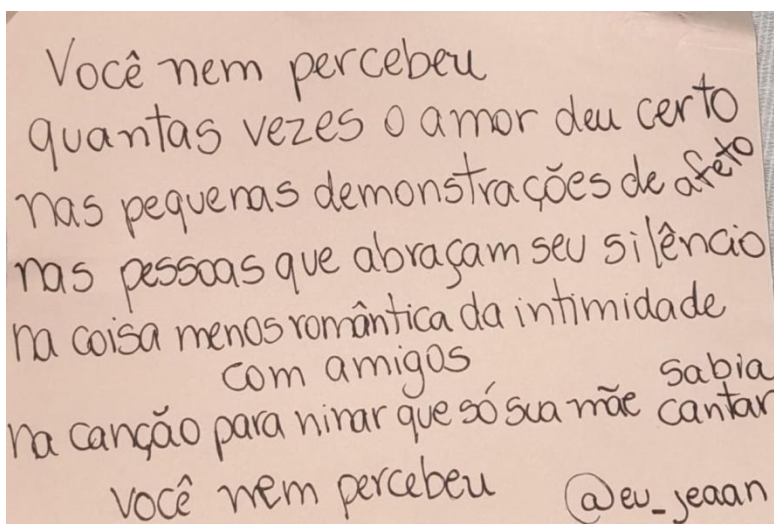 Você nem percebeu
quantas vezes o amor deu certo
nas pequenas demonstrações de afeto
nas pessoas que abraçam seu silêncio
na coisa menos romântica da intimidade
com amigos
na canção para ninar que só sua mãe sabia cantar
você nem percebeu
@eu_jeaan